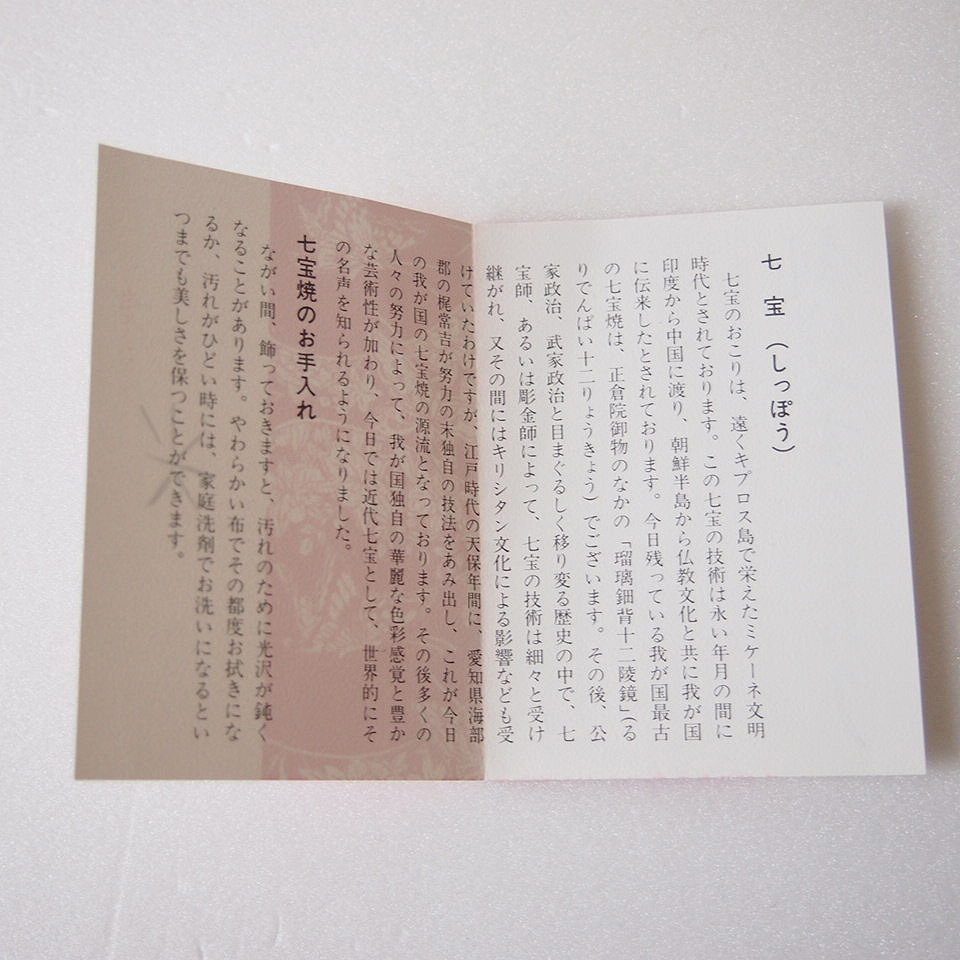 七宝（しっぽう）
七宝のおこりは、遠くキプロス島で栄えたミケーネ文明
時代とされております。この七宝の技術は永い年月の間に
印度から中国に渡り、朝鮮半島から仏教文化と共に我が国
に伝来したとされております。今日残っている我が国最古
の七宝焼は、正倉院御物のなかの「瑠璃鈿背十二陵鏡」（る
りでんぱい十二りょうきょう）でございます。その後、公
家政治、武家政治と目まぐるしく移り変る歴史の中で、七
宝師、あるいは彫金師によって、七宝の技術は細々と受け
継がれ、又その間にはキリシタン文化による影響なども受
けていたわけですが、江戸時代の天保年間に、愛知県海部
郡の梶常吉が努力の末独自の技法をあみ出し、これが今日
の我が国の七宝焼の源流となっております。その後多くの
人々の努力によって、我が国独自の華麗な色彩感覚と豊か
な芸術性が加わり、今日では近代七宝として、世界的にそ
の名声を知られるようになりました。
七宝焼のお手入れ
ながい間、飾っておきますと、汚れのために光沢が鈍く
なることがあります。やわらかい布でその都度お拭きにな
るか、汚れがひどい時には、家庭洗剤でお洗いになるとい
つまでも美しさを保つことができます。